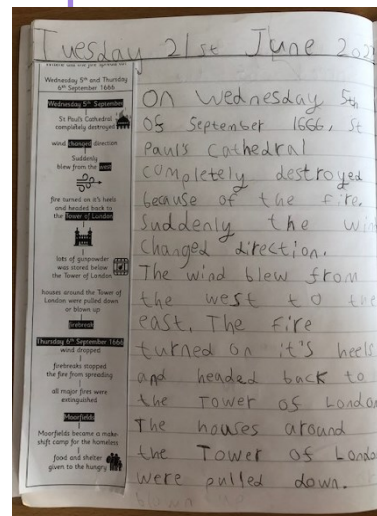 Tuesday 21st June 202
Wednesday 5th and Thursday
6th September 1666
Wednesday 5th September
St Paul's Cathedral
completely destroyed
wind changed direction
Suddenly
blew from the west
fire turned on it's heels
and headed back to
the Tower of London
lots of gunpowder
was stored below
the Tower of London
houses around the Tower of
London were pulled down
or blown up
firebreak
Thursday 6th September 1666
wind dropped
firebreaks stopped
the fire from spreading
all major fires were
extinguished
Moorfields
Moorfields became a make-
shift camp for the homeless
food and shelter
given to the hungry
On Wednesday 5th
of September 1666, St
Paul's Cathedral
completely destroyed
because of the fire.
Suddenly the win
changed direction.
The wind blew from
the west to the
east. The fire
turned on it's heels
and headed back to
the Tower of London
The houses around
the Tower of Londo
were pulled down.